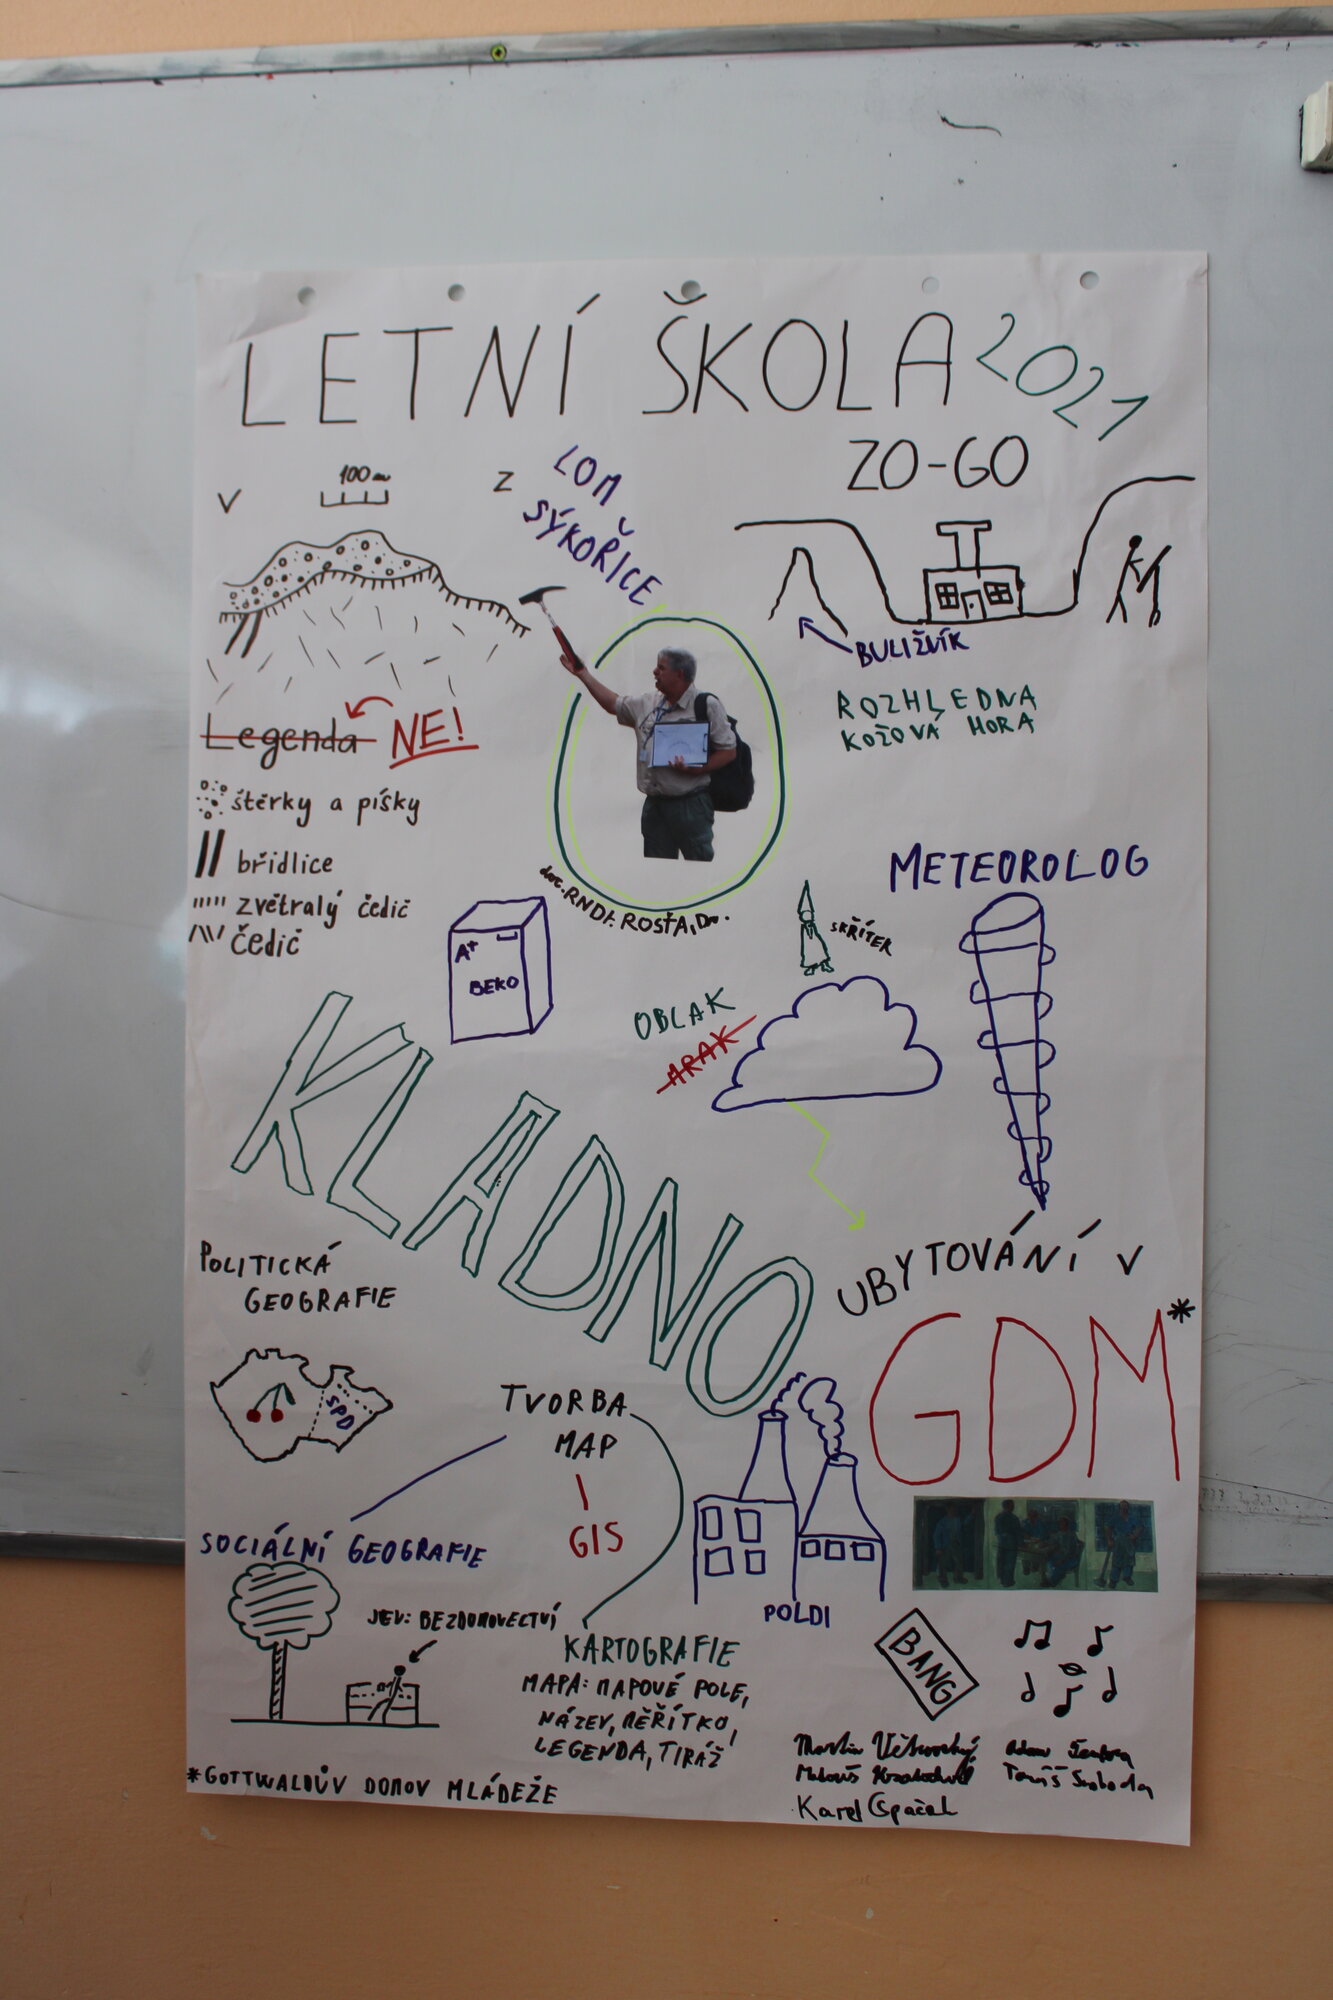 LETNÍ ŠKOLA 2021
ZO-GO
V
100 m
Z
LOM
SÝKOŘICE
BULIŽNÍK
ROZHLEDNA
KOŽOVÁ HORA
Legenda NE!
štěrky a písky
břidlice
zvětralý čedič
čedič
doc. RNDr. ROSŤA, Dr.
METEOROLOG
SKŘÍTEK
A+
BEKO
OBLAK
MRAK
KLADNO
UBYTOVÁNÍ V
GDM*
POLITICKÁ
GEOGRAFIE
SPD
TVORBA
MAP
GIS
SOCIÁLNÍ GEOGRAFIE
JEV: BEZDOMOVECTVÍ
POLDI
KARTOGRAFIE
MAPA: MAPOVÉ POLE,
NÁZEV, MĚŘÍTKO,
LEGENDA, TIRÁŽ
BANG
Tomáš Svoboda
Karel
*GOTTWALDŮV DOMOV MLÁDEŽE